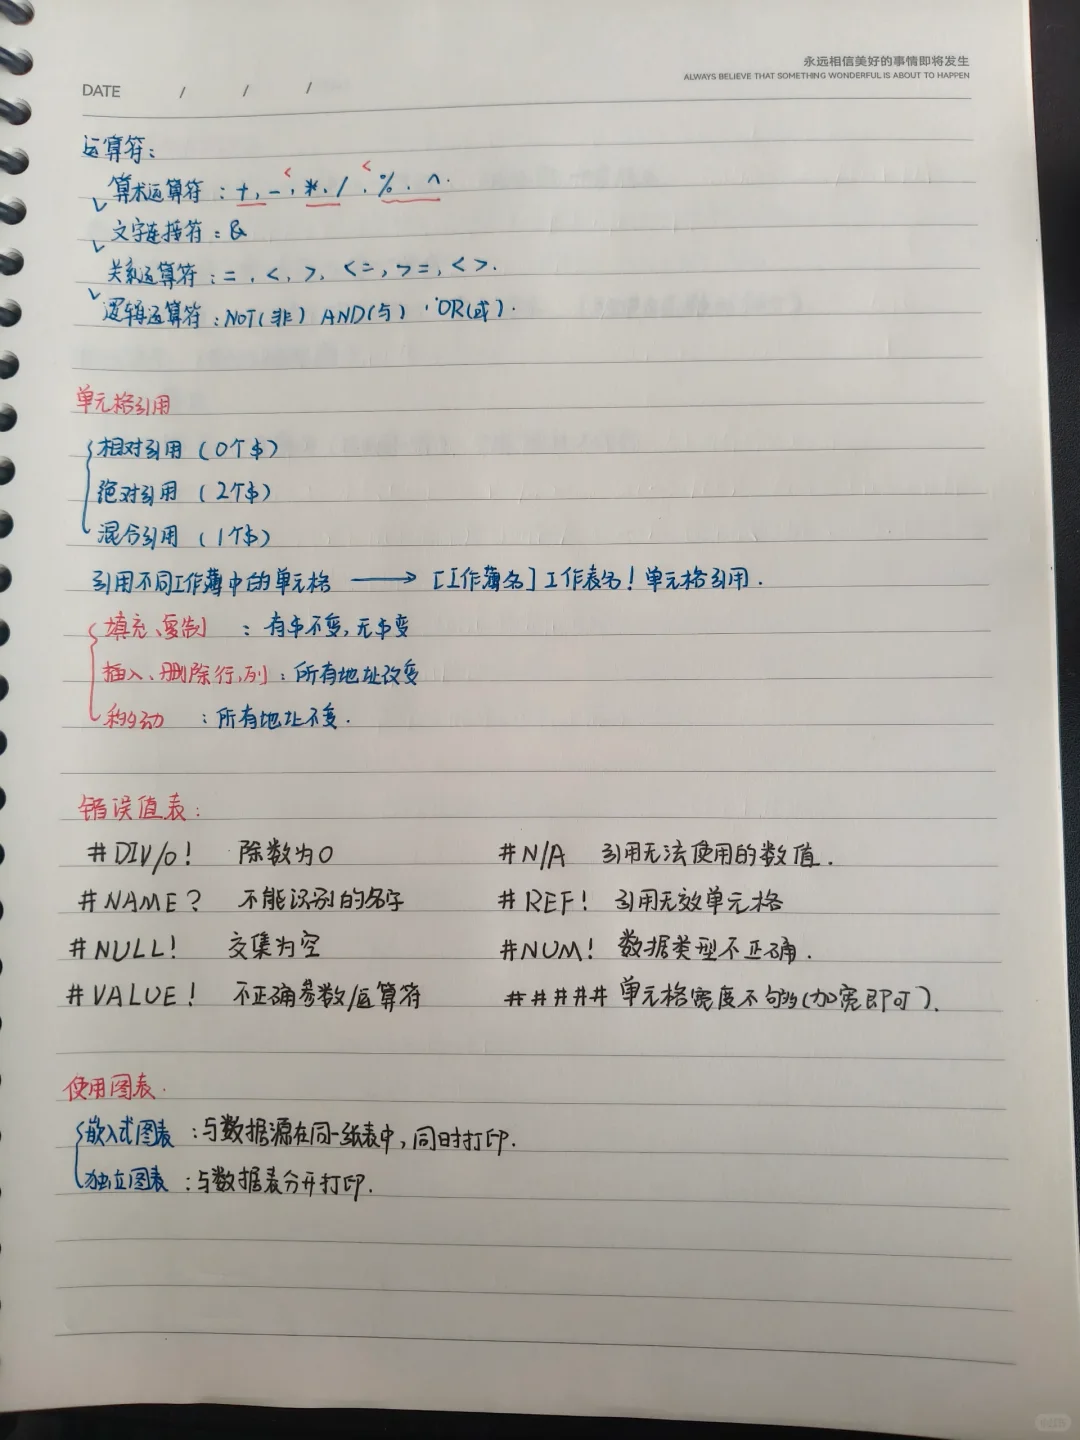 永远相信美好的事情即将发生
ALWAYS BELIEVE THAT SOMETHING WONDERFUL IS ABOUT TO HAPPEN
DATE / / /
运算符:
算术运算符:+,-<*./<%.^.
文字连接符:&
关系运算符:=.<,>,<=,>=,<>.
逻辑运算符:NOT(非) AND(与)、OR(或).
单元格引用
相对引用(0个$)
绝对引用(2个$)
混合引用(1个$)
引用不同工作薄中的单元格 ⟶ [工作薄名]工作表名!单元格引用.
填充、复制 :有$不变,无$变
插入、删除行、列:所有地址改变
移动 :所有地址不变.
错误值表:
#DIV/0! 除数为0 #N/A 引用无法使用的数值.
#NAME? 不能识别的名字 #REF! 引用无效单元格
#NULL! 交集为空 #NUM! 数据类型不正确.
#VALUE! 不正确参数/运算符 ##### 单元格宽度不够(加宽即可).
使用图表.
嵌入式图表:与数据源在同一纸表中,同时打印.
独立图表:与数据表分开打印.